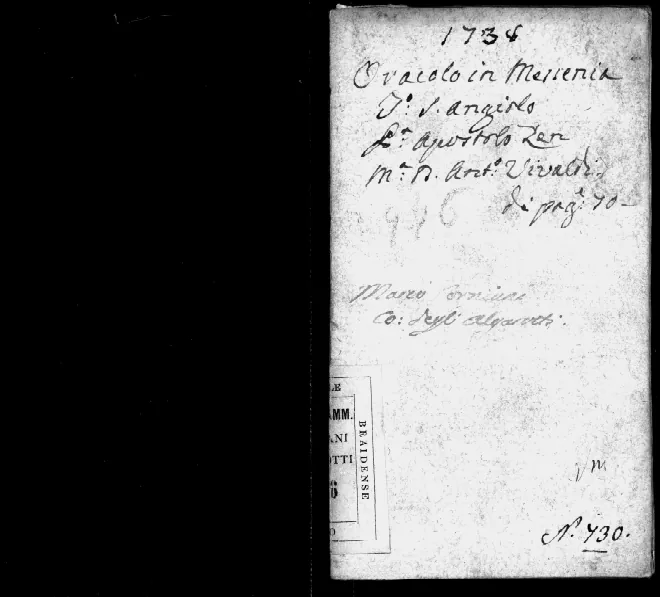 1738
Oracolo in Messenia
T.º S. Angiolo
P.ª Apostolo Zen
M.ª D. Ant.º Vivaldi
di pag.i 70
Marco Corniani
Co: degli Algarotti.
LE
AMM.
ANI
OTTI
6
O
BRAIDENSE
N.º 730.